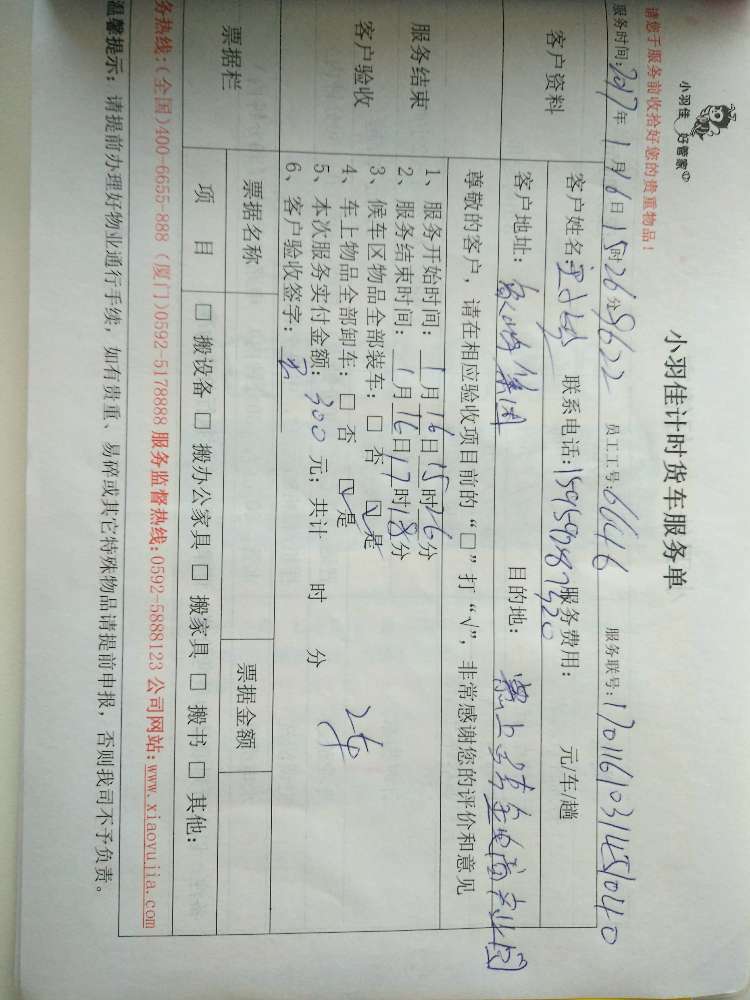 请您于服务前收拾好您的贵重物品！
小羽佳 好管家
小羽佳计时货车服务单
服务时间：2017年1月16日15时26分 9622 员工工号：6646 服务联号：170116103145104 0
客户资料
客户姓名： 联系电话： 服务费用： 元/车/趟
客户地址： 集团 目的地：
服务结束
客户验收
尊敬的客户，请在相应验收项目前的“□”打“√”，非常感谢您的评价和意见
1、服务开始时间：1月16日15时26分
2、服务结束时间：1月16日17时18分
3、候车区物品全部装车：□ 否 ☑ 是
4、车上物品全部卸车：□ 否 ☑ 是
5、本次服务实付金额：300元；共计 时 分
6、客户验收签字：
票据栏
票据名称 票据金额
项 目 □ 搬设备 □ 搬办公家具 □ 搬家具 □ 搬书 □ 其他：
务热线：(全国)400-6655-888 (厦门)0592-5178888 服务监督热线：0592-5888123 公司网站：www.xiaoyujia.com
温馨提示：请提前办理好物业通行手续，如有贵重、易碎或其它特殊物品请提前申报，否则我司不予负责。